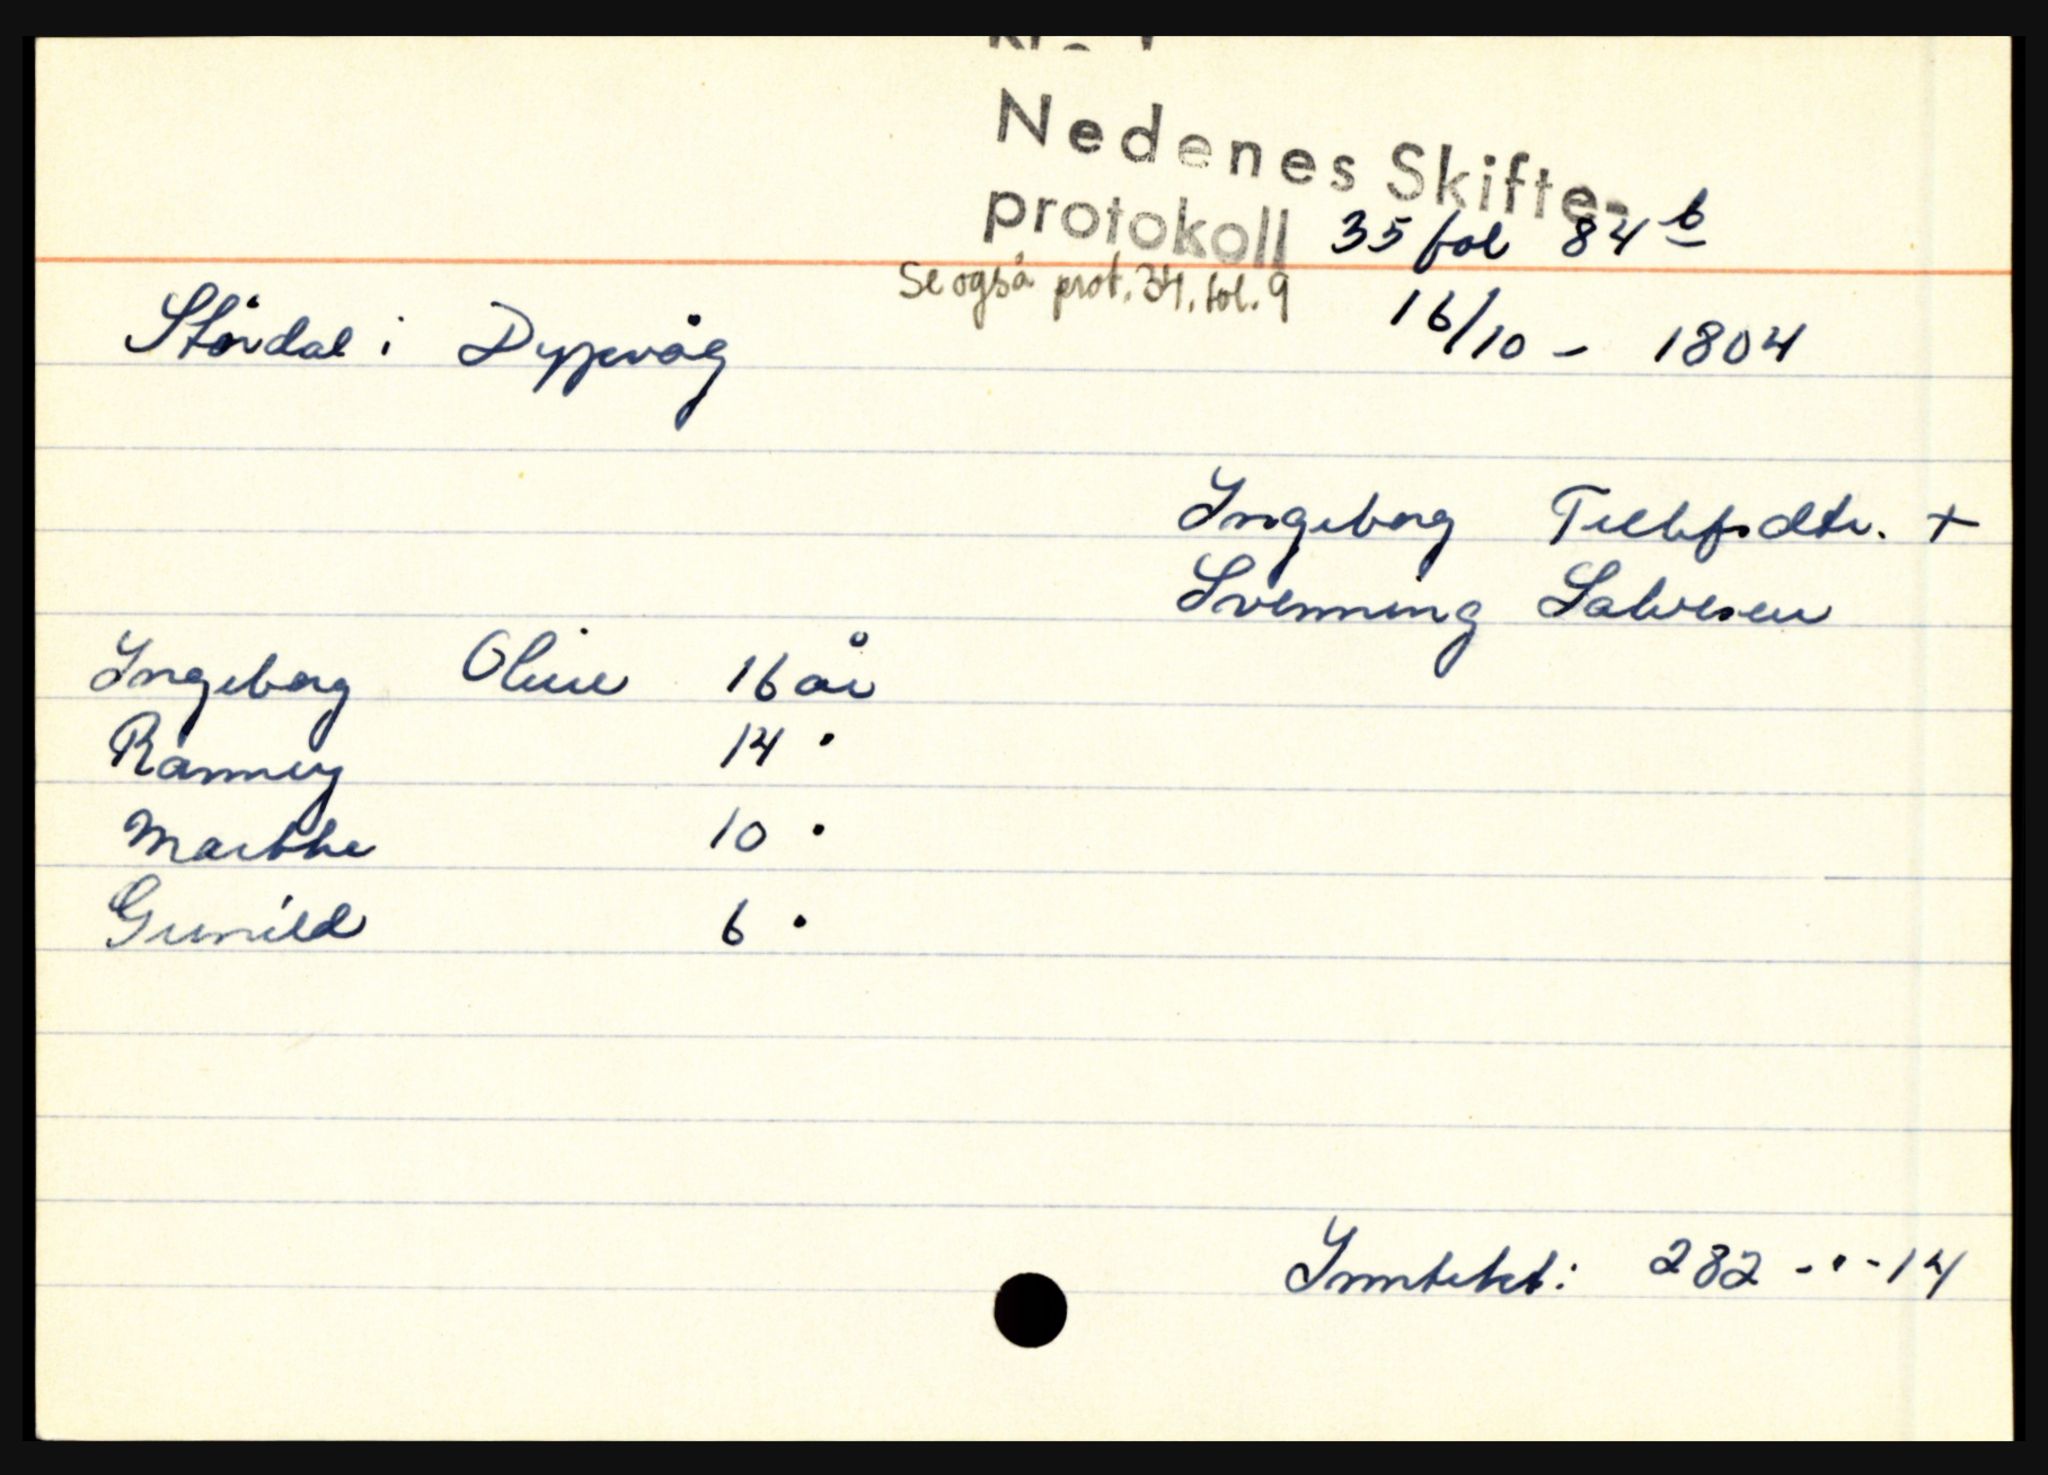 Nedenes Skifte-
protokoll 35 fol 84 b
Se også prot. 34. fol. 9
16/10 - 1804
Stårdal i Dypvåg
Ingeborg Tellefsdtr. +
Svenning Salvesen
Ingeborg Oline 16 år
Rannveg 14 "
Marthe 10 "
Gunild 6 "
Inntekt: 282 - " - 14